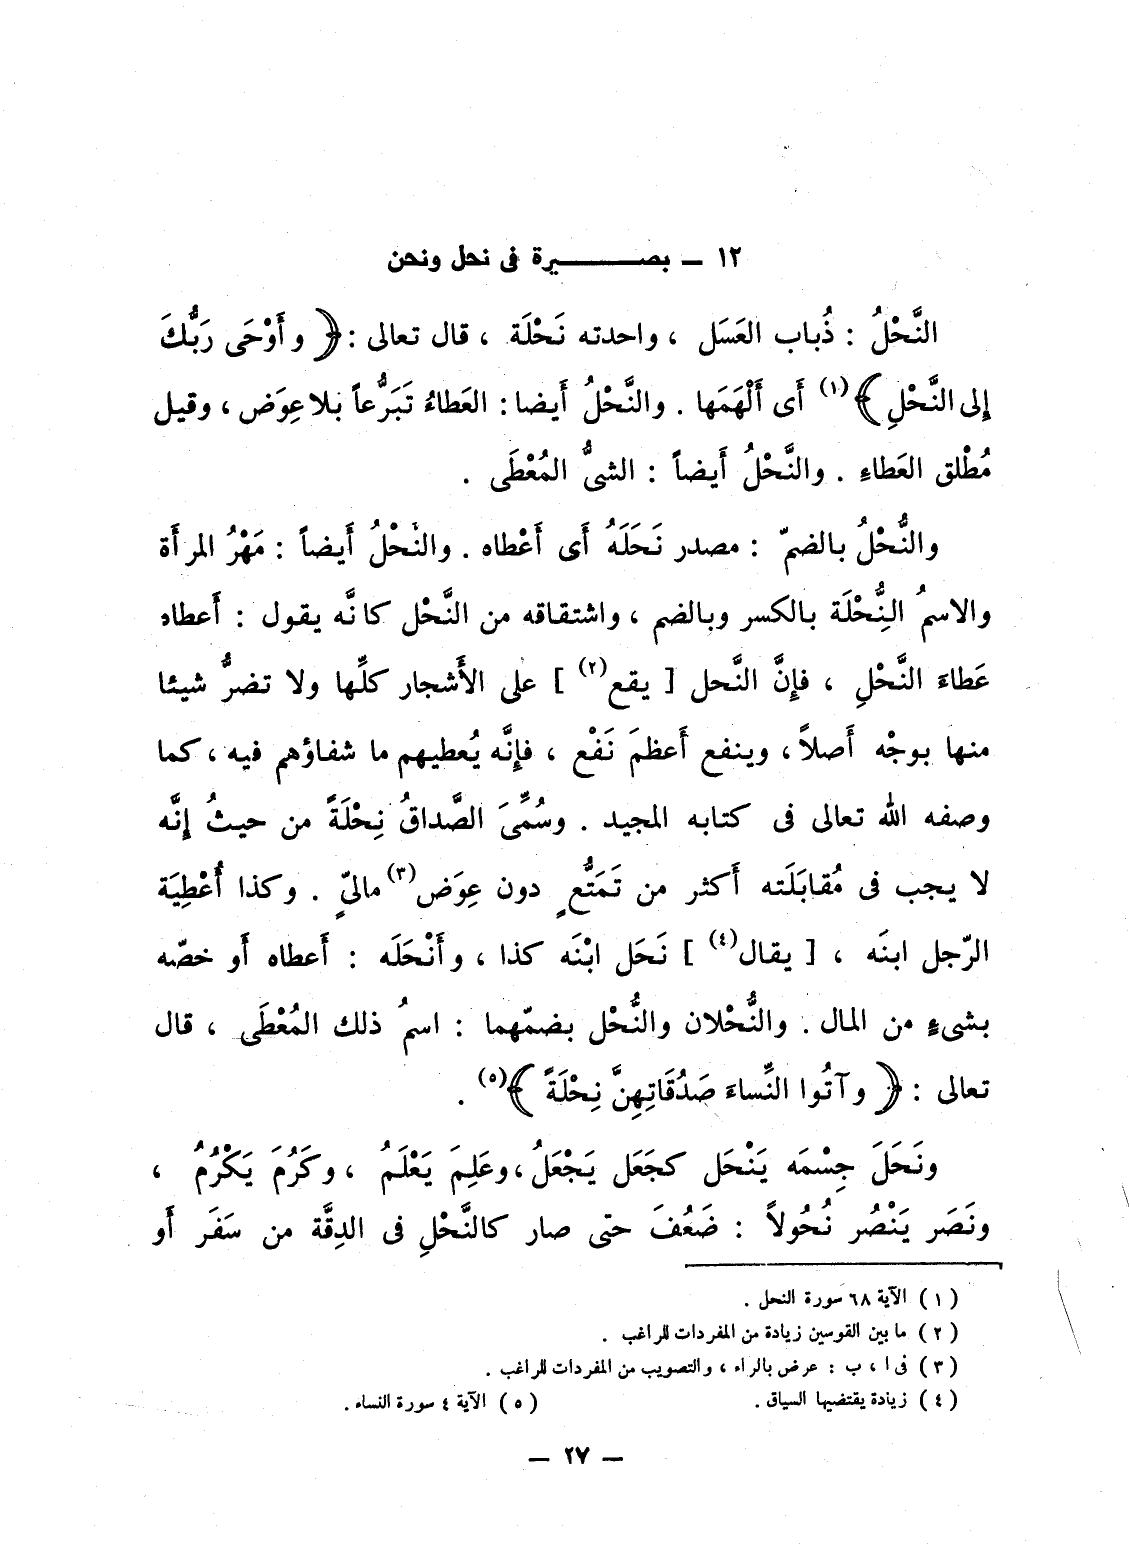 ١٢ ــ بصـــــــيرة فى نحل ونحن
النَّحْلُ : ذُباب العَسَل ، واحدته نَحْلَة ، قال تعالى : ﴿ وأَوْحَى رَبُّكَ
إلى النَّحْلِ ﴾(١) أَى أَلْهَمَها . والنَّحْلُ أَيضا : العَطاءُ تَبَرُّعاً بلاعِوَض ، وقيل
مُطْلق العَطاءِ . والنَّحْلُ أَيضاً : الشىُّ المُعْطَى .
والنُّحْلُ بالضمّ : مصدر نَحَلَهُ أَى أَعْطاه . والنُحْلُ أَيضاً : مَهْرُ المرأَة
والاسمُ النِّحْلَة بالكسر وبالضم ، واشتقاقه من النَّحْل كانَّه يقول : أَعطاه
عَطاءَ النَّحْلِ ، فإِنَّ النَّحل [ يقع(٢) ] على الأَشجار كلِّها ولا تضرُّ شيئا
منها بوجْه أَصلاً ، وينفع أَعظمَ نَفْع ، فإِنَّه يُعطيهم ما شفاؤهم فيه ، كما
وصفه الله تعالى فى كتابه المجيد . وسُمِّىَ الصَّداقُ نِحْلَةً من حيثُ إنَّه
لا يجب فى مُقابَلَته أَكثر من تَمَتُّعٍ دون عِوَض(٣) ماليٍّ . وكذا أُعْطِيَة
الرّجل ابنَه ، [ يقال(٤) ] نَحَل ابْنَه كذا ، وأَنْحَلَه : أَعطاه أَو خصّه
بشىءٍ من المال . والنُّحْلان والنُّحْل بضمّهما : اسمُ ذلك المُعْطَى ، قال
تعالى : ﴿ وآتُوا النِّساءَ صَدُقَاتِهِنَّ نِحْلَةً ﴾(٥) .
ونَحَلَ جِسْمَه يَنْحَل كجَعَل يَجْعَلُ ، وعَلِمَ يَعْلَمُ ، وكَرُمَ يَكْرُمُ ،
ونَصَر يَنْصُر نُحُولاً : ضَعُفَ حتى صار كالنَّحْلِ فى الدِقَّة من سَفَر أَو
( ١ ) الآية ٦٨ سورة النحل .
( ٢ ) ما بين القوسين زيادة من المفردات للراغب .
( ٣ ) فى ا ، ب : عرض بالراء ، والتصويب من المفردات للراغب .
( ٤ ) زيادة يقتضيها السياق . ( ٥ ) الآية ٤ سورة النساء .
ــ ٢٧ ــ